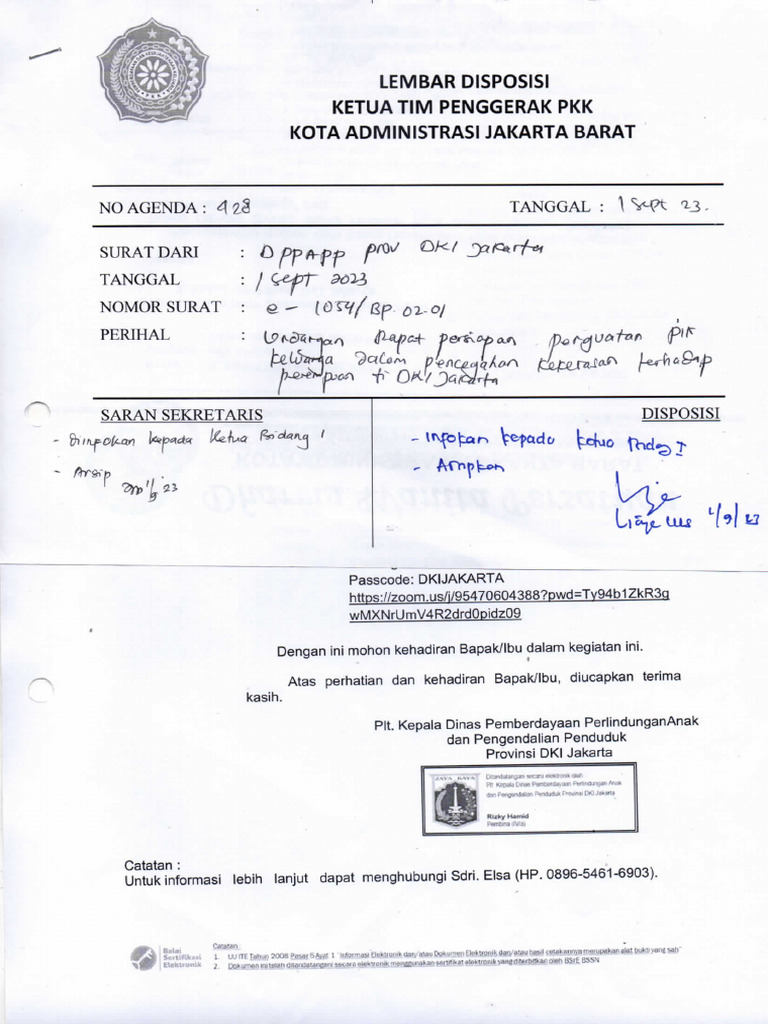 LEMBAR DISPOSISI
KETUA TIM PENGGERAK PKK
KOTA ADMINISTRASI JAKARTA BARAT
NO AGENDA : 428 TANGGAL : 1 Sept 23.
SURAT DARI : DPPAPP prov DKI Jakarta
TANGGAL : 1 Sept 2023
NOMOR SURAT : e - 1054/BP.02-01
PERIHAL : Undangan Rapat persiapan penguatan PIK
keluarga dalam pencegahan kekerasan terhadap
perempuan di DKI Jakarta
SARAN SEKRETARIS
- Diinfokan kepada Ketua Bidang 1
- Arsip
DISPOSISI
- Infokan kepada Ketua Bidang I
- Arsipkan
1/9/23
Passcode: DKIJAKARTA
https://zoom.us/j/95470604388?pwd=Ty94b1ZkR3g
wMXNrUmV4R2drd0pidz09
Dengan ini mohon kehadiran Bapak/Ibu dalam kegiatan ini.
Atas perhatian dan kehadiran Bapak/Ibu, diucapkan terima
kasih.
Plt. Kepala Dinas Pemberdayaan PerlindunganAnak
dan Pengendalian Penduduk
Provinsi DKI Jakarta
JAYA RAYA
Ditandatangani secara elektronik oleh
Plt. Kepala Dinas Pemberdayaan Perlindungan Anak
dan Pengendalian Penduduk Provinsi DKI Jakarta
Rizky Hamid
Pembina (IV/a)
Catatan :
Untuk informasi lebih lanjut dapat menghubungi Sdri. Elsa (HP. 0896-5461-6903).
Balai
Sertifikasi
Elektronik
Catatan :
1. UU ITE Tahun 2008 Pasal 5 Ayat 1 "Informasi Elektronik dan/atau Dokumen Elektronik dan/atau hasil cetakannya merupakan alat bukti yang sah"
2. Dokumen ini telah ditandatangani secara elektronik menggunakan sertifikat elektronik yang diterbitkan oleh BSrE BSSN